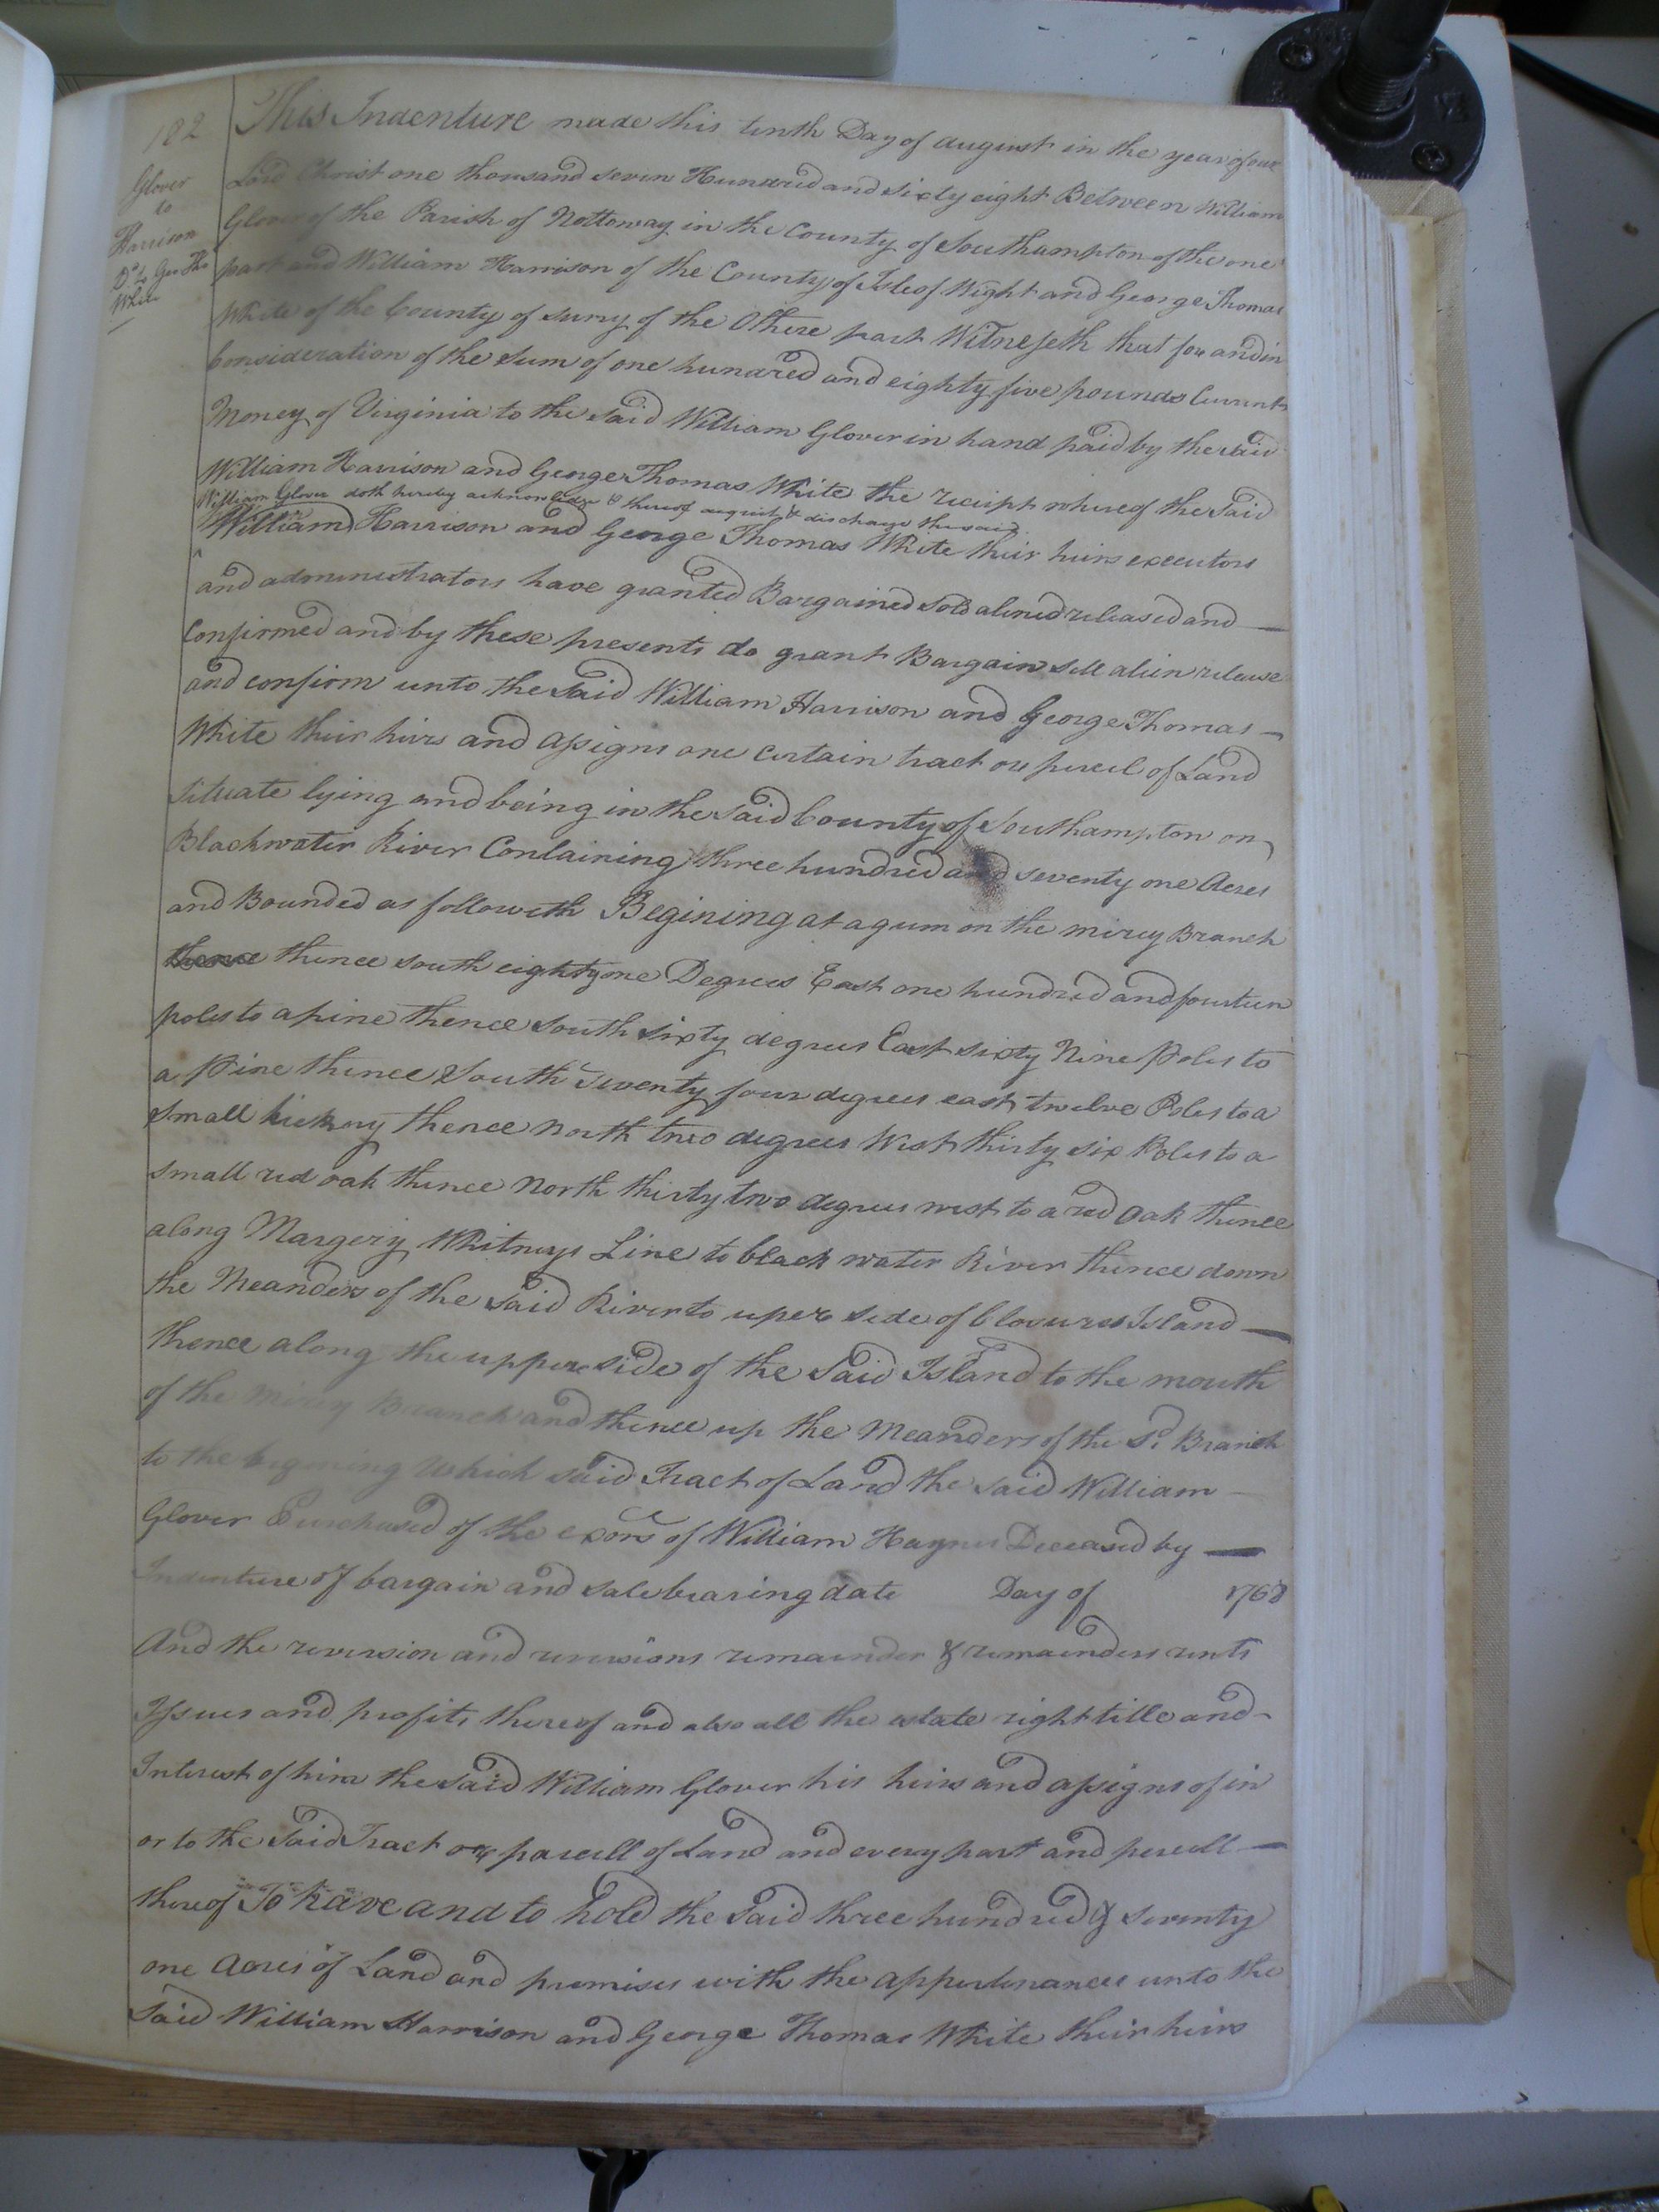 182
Glover
to
Harrison
Do. to Geo Tho
White
This Indenture made this tenth Day of august in the year of our
Lord Christ one thousand seven Hundred and sixty eight Between William
Glover of the Parish of Nottoway in the County of Southampton of the one
part and William Harrison of the County of Isle of Wight and George Thomas
White of the County of surry of the Othere part Witnesseth that for and in
Consideration of the sum of one hundred and eighty five pounds Currant
Money of Virginia to the said William Glover in hand paid by the said
William Harrison and George Thomas White the receipt whereof the Said
William Glover doth hereby acknowledge & thereof acquit & discharge the said
William Harrison and George Thomas White their heirs executors
and administrators have granted Bargained sold aliened released and
Confirmed and by these presents do grant Bargain sell alien release
and confirm unto the said William Harrison and George Thomas
White their heirs and assigns one certain tract or percel of Land
situate lying and being in the said County of Southampton on
Blackwater River Containing three hundred and seventy one Acres
and Bounded as followeth Begining at a gum on the mirey Branch
thence south eighty one Degrees East one hundred and fourteen
poles to a pine thence south sixty degrees East sixty Nine Poles to
a Pine thence South seventy four degrees east twelve Poles to a
small hickory thence North two degrees West thirty six Poles to a
small red oak thence North thirty two degrees west to a red Oak thence
along Margery Whitneys Line to black water River thence down
the Meanders of the said River to uper side of Closures Island
thence along the upper side of the Said Island to the mouth
of the Mirey Branch and thence up the Meanders of the Sd. Branch
to the begining Which said Tract of Land the said William
Glover Purchased of the exors of William Haynes Deceased by
Indenture of bargain and sale bearing date Day of 1768
And the reversion and reversions remainder & remainders rents
Issues and profits thereof and also all the estate right title and
Interest of him the said William Glover his heirs and assigns of in
or to the Said Tract or parcell of Land and every part and percell
thereof To have and to hold the said three hundred & seventy
one Acres of Land and premises with the appurtenances unto the
Said William Harrison and George Thomas White their heirs